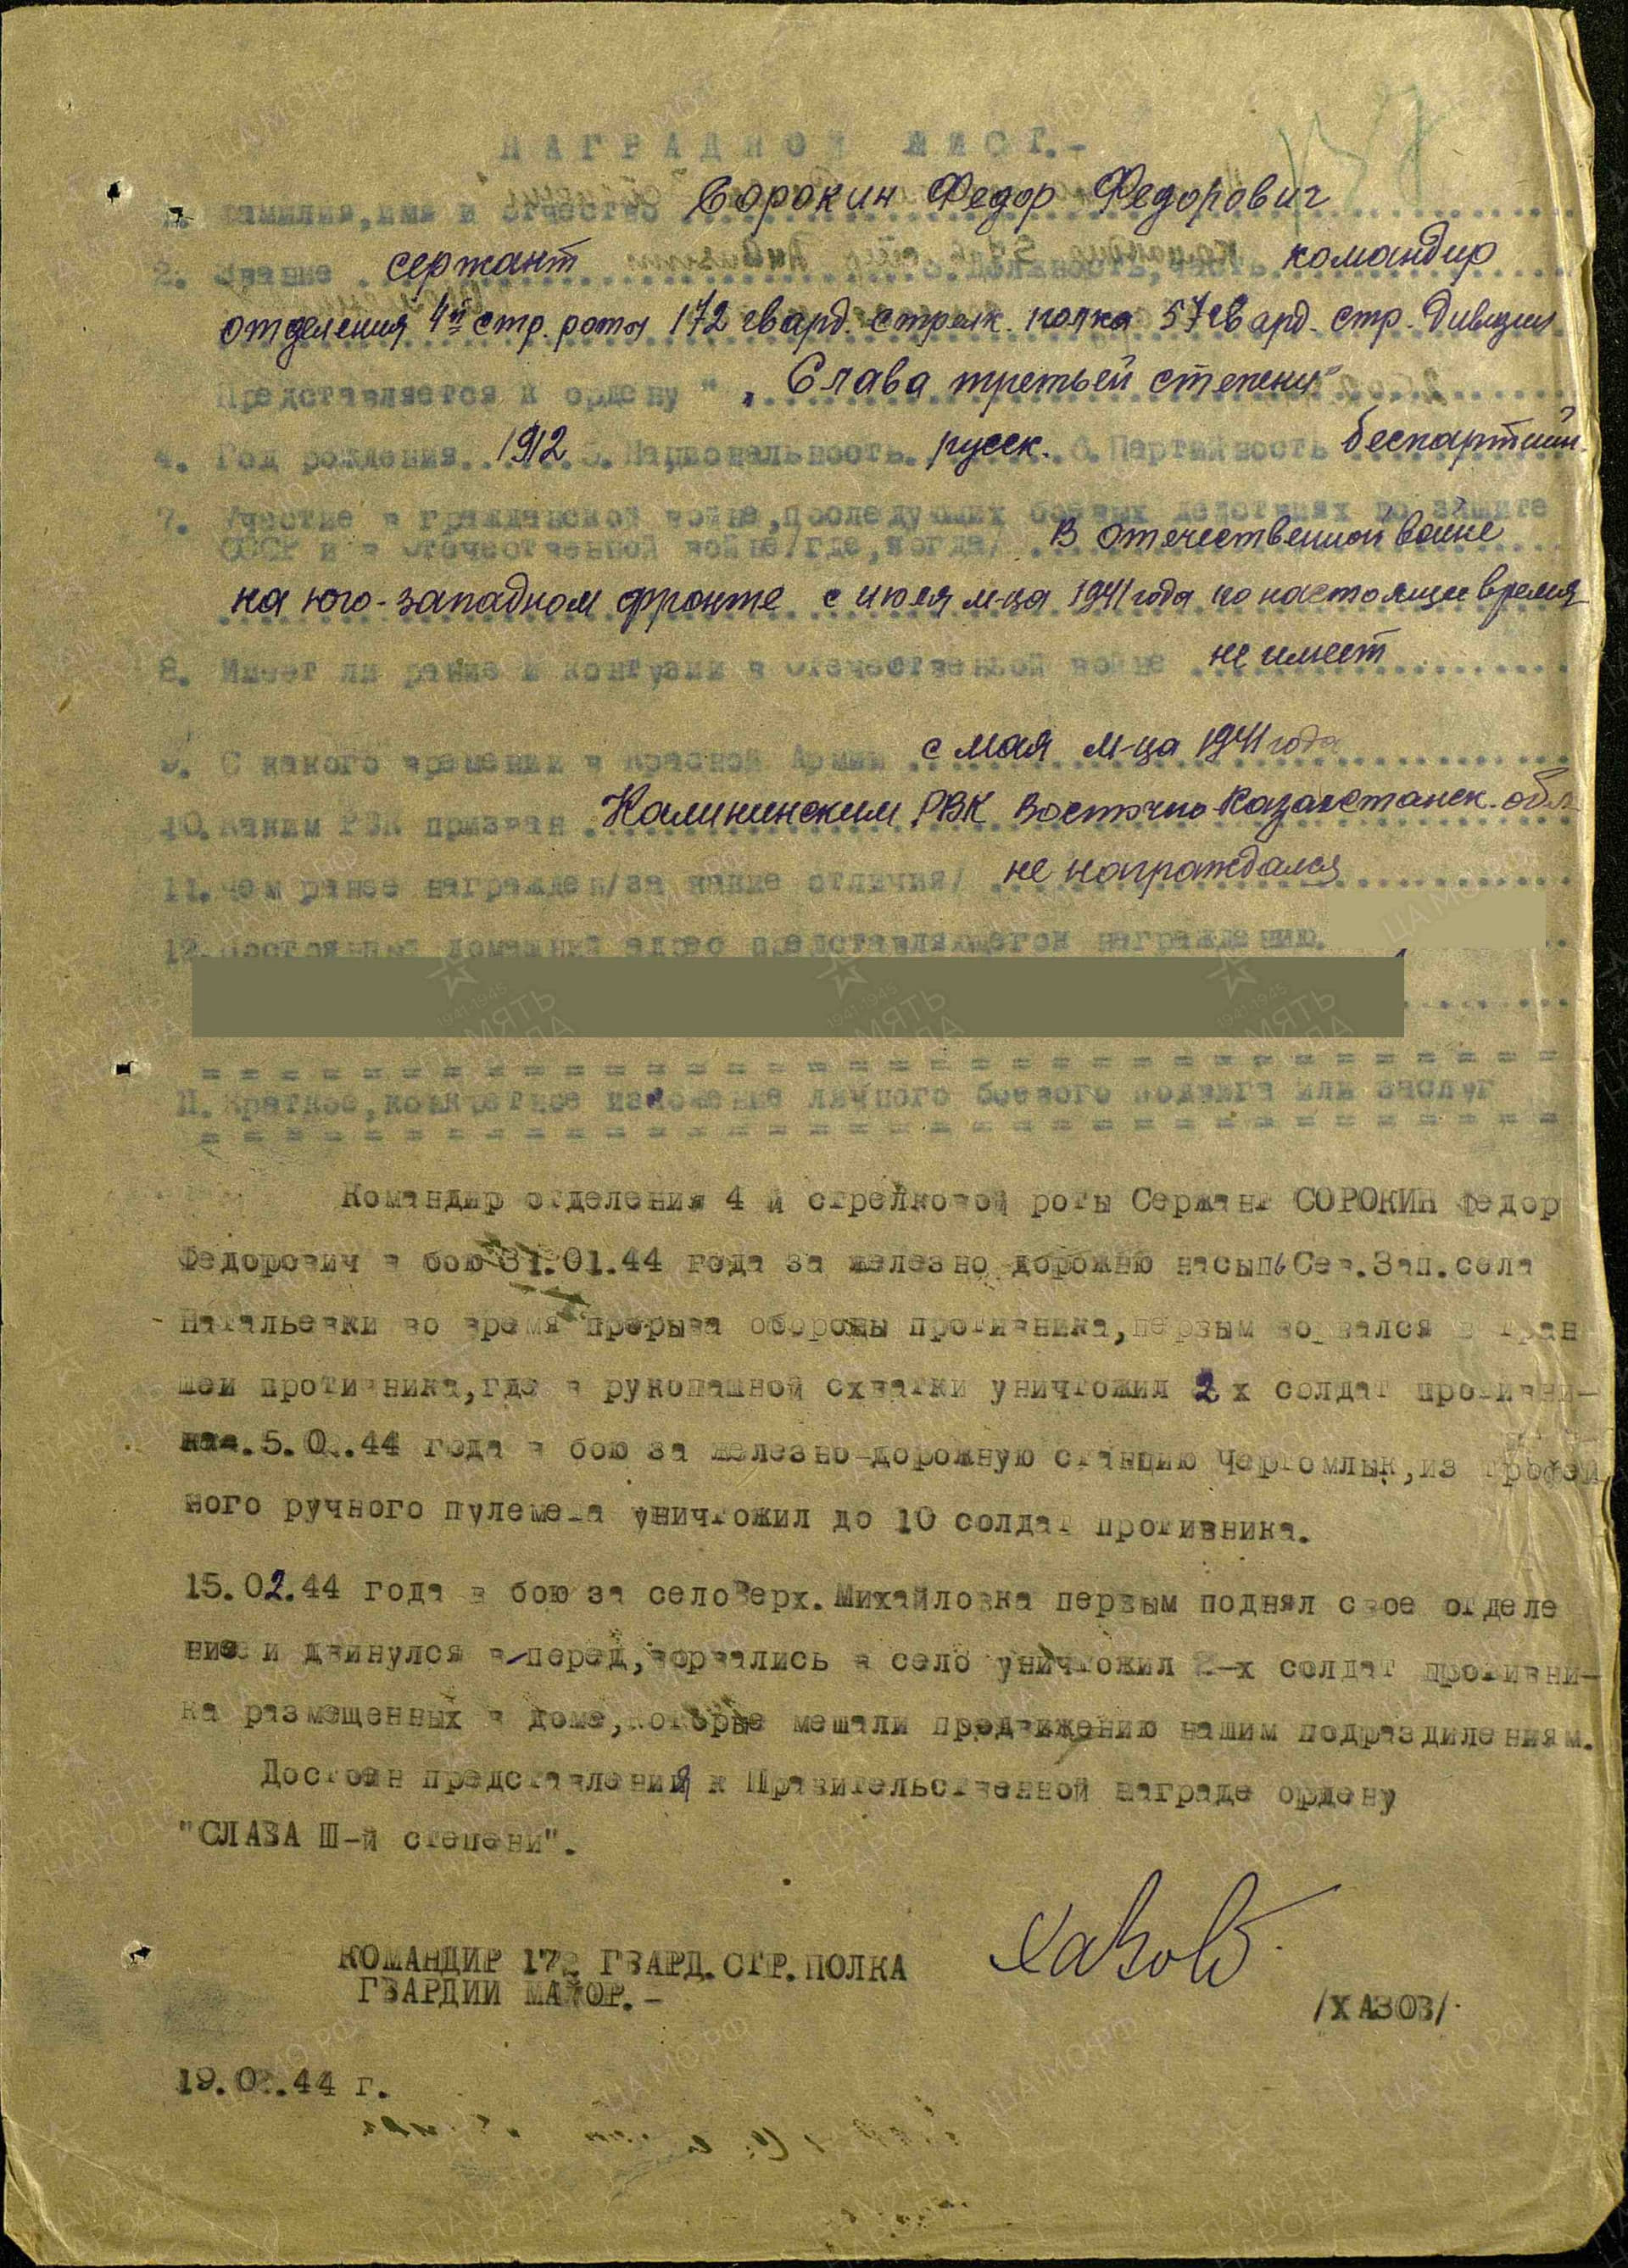 НАГРАДНОЙ ЛИСТ.-
1. Фамилия, имя и отчество Сорокин Федор Федорович
2. Звание сержант 3. Должность, часть командир
отделения 4й стр. роты 172 гвард. стрелк. полка 57 гвард. стр. дивизии
Представляется к ордену " „Слава третьей степени"
4. Год рождения 1912 5. Национальность. русск. 6. Партийность беспартийн.
7. Участие в гражданской войне, последующих боевых действиях по защите
СССР и в отечественной войне/где, когда/ В отечественной войне
на юго-западном фронте с июля м-ца 1941 года по настоящее время
8. Имеет ли рание и контузии в отечественной войне не имеет
9. С какого времении в Красной Армии с мая м-ца 1941 года
10. Каким РВК призван Калининским РВК Восточно-Казахстанск. обл
11. Чем ранее награжден/за какие отличия/ не награждался
12. Постоянный домашний адрес представляющегося награждению.
II. Краткое, конкретное изложение личного боевого подвига или заслуг
Командир отделения 4 й стрелковой роты Сержант СОРОКИН Федор
Федорович в бою 31.01.44 года за железно дорожню насыпь Сев. Зап. села
Натальевки во время прорыва обороны противника, первым ворвался в тран
шеи противника, где в рукопашной схватки уничтожил 2 х солдат противни-
ка. 5.0.44 года в бою за железно-дорожную станцию Чертомлык, из трофей
ного ручного пулемета уничтожил до 10 солдат противника.
15.02.44 года в бою за село Верх. Михайловка первым поднял свое отделе
ние и двинулся в перед, ворвались в село уничтожил 2-х солдат противни-
ка размещенных в доме, которые мешали продвижению нашим подраздилениям.
Достоин представления к Правительственной награде ордену
"СЛАВА III-й степени".
КОМАНДИР 172 ГВАРД. СТР. ПОЛКА
ГВАРДИИ МАЙОР.- Хазов
/ХАЗОВ/
19.0.44 г.